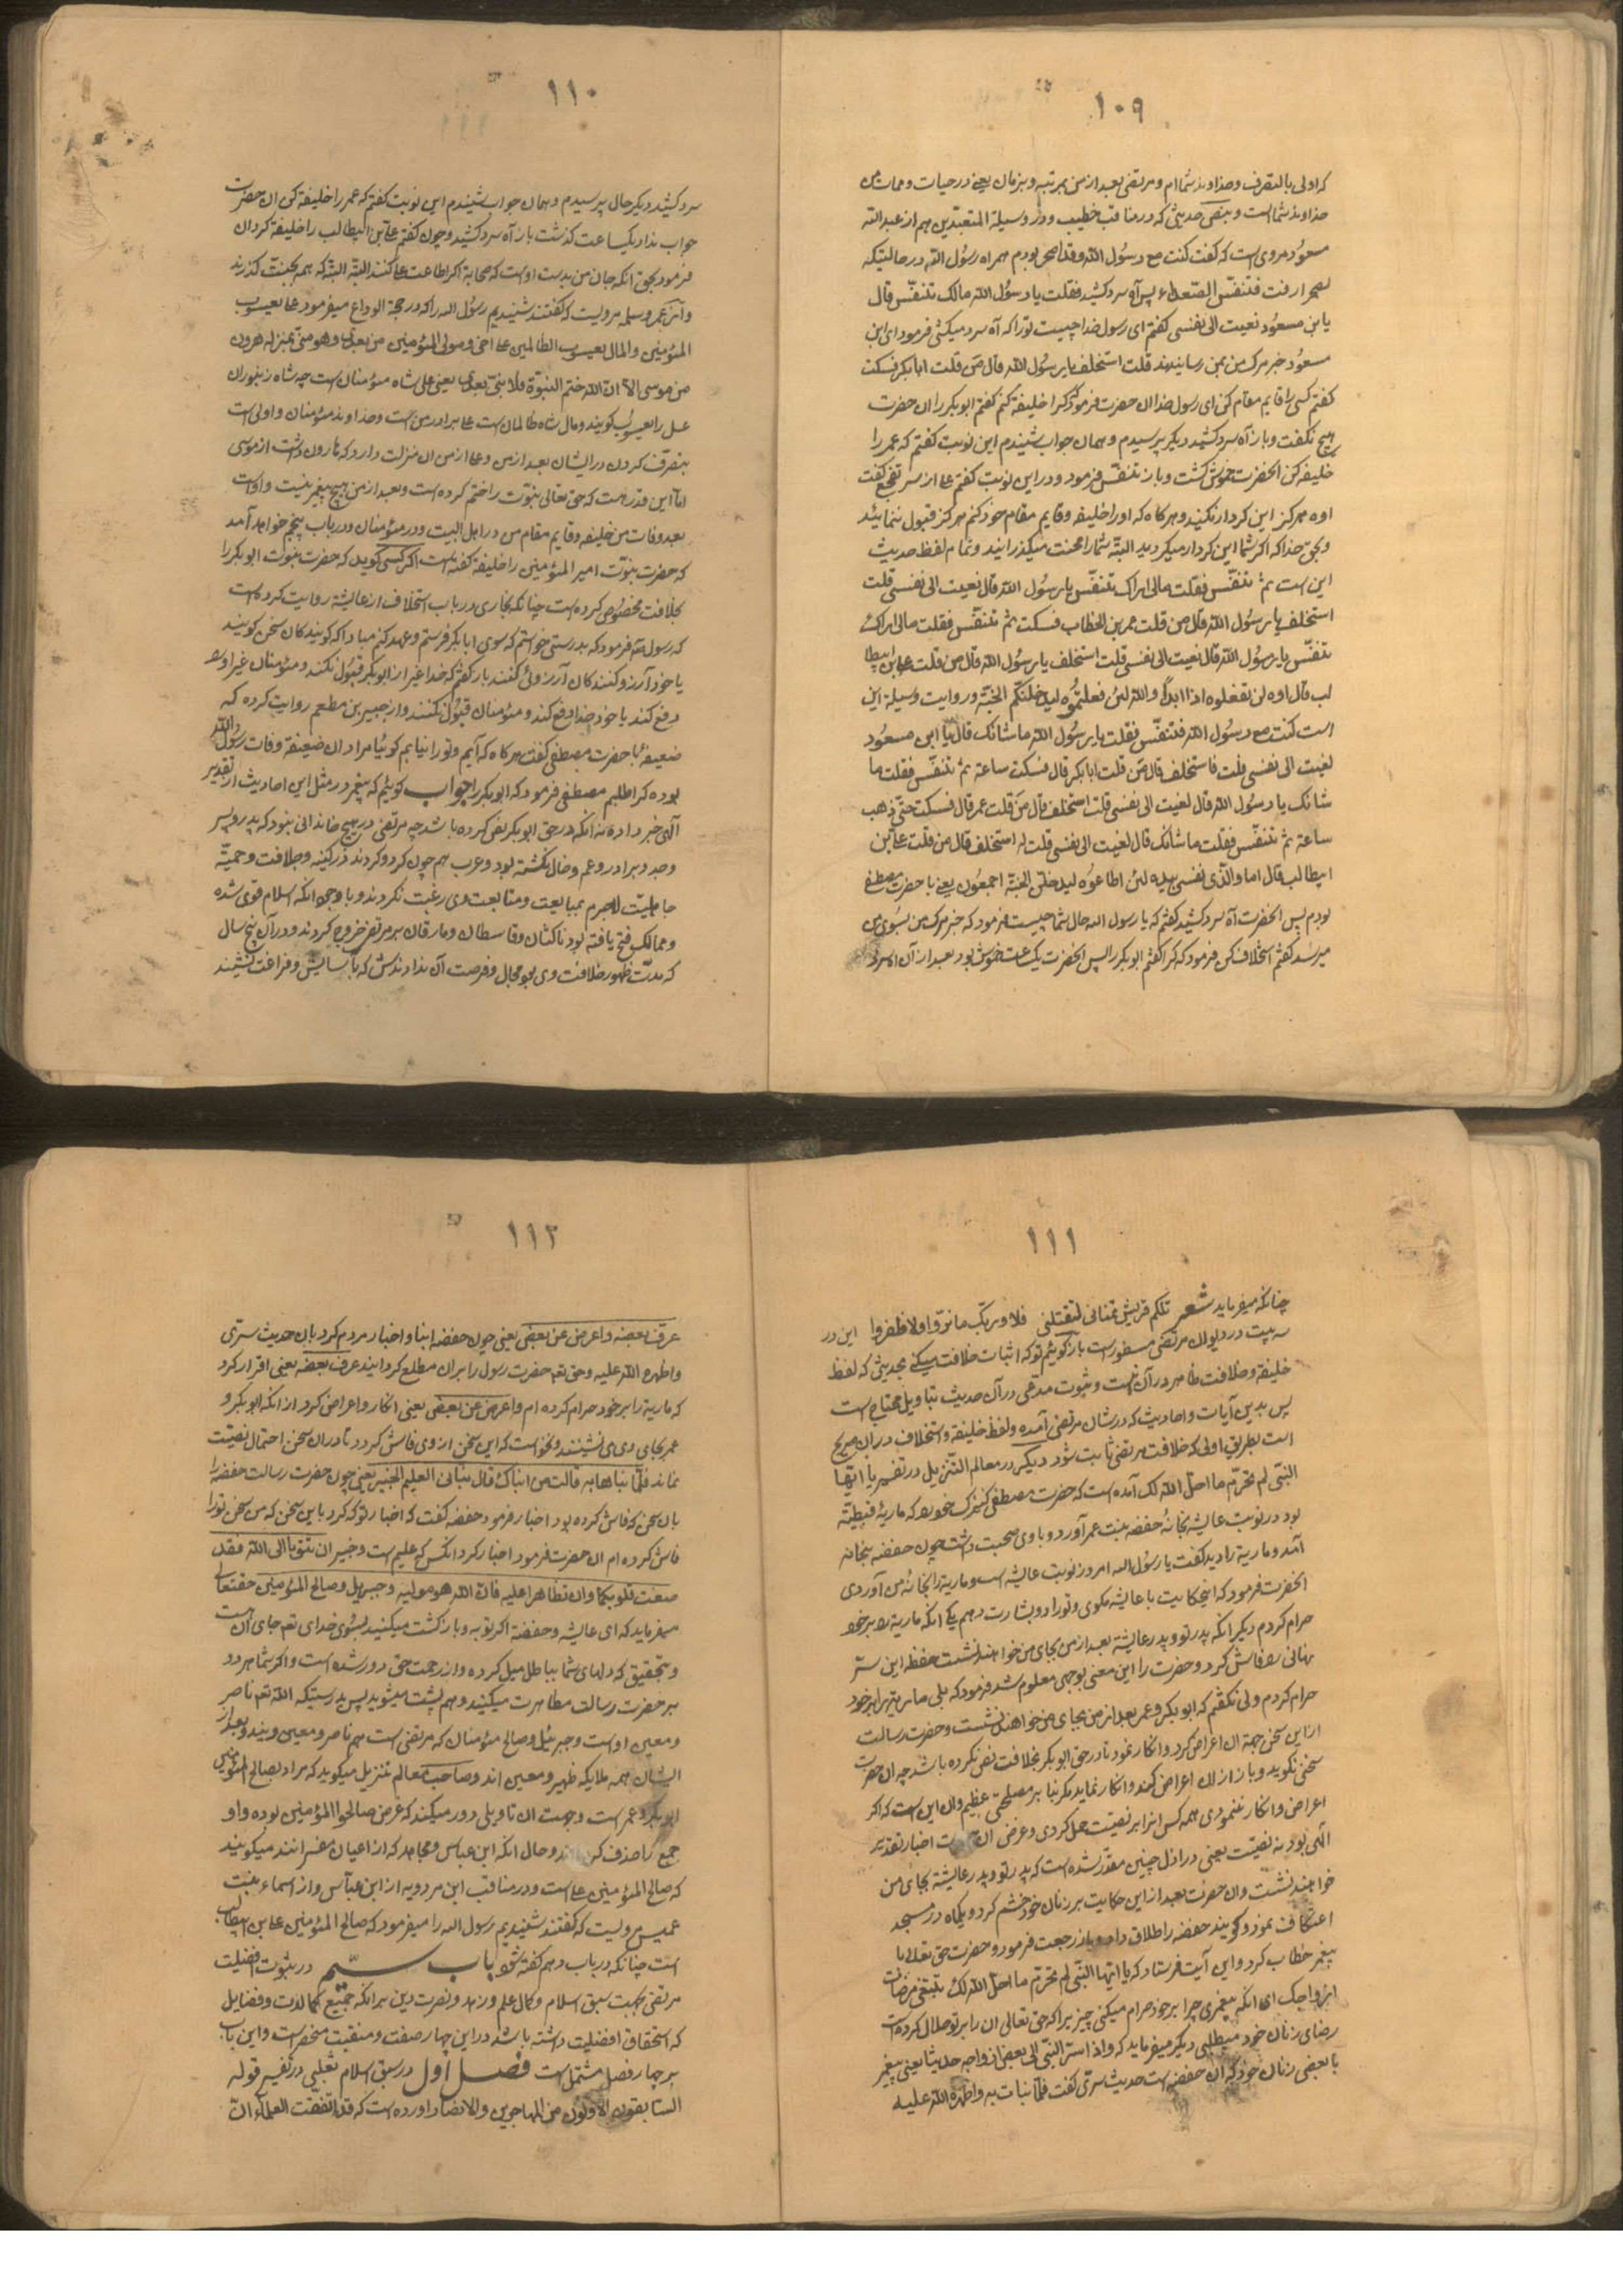 ١٠٩
که اولی بالتصرف وخداوند شماام ومرتضی بعد از من بمرتبه وبزمان یعنی در حیات وممات من
خداوند شماست وبنص حدیثی که در مناقب خطیب ودر وسیلة المتعبدین هم از عبدالله
مسعود مروی است که گفت کنت مع رسول الله وقد اصحر بودم همراه رسول الله در حالیکه
بصحرا رفت فتنفس الصعداء پس آه سرد کشید فقلت یا رسول الله مالک تتنفس قال
یابن مسعود نعیت الی نفسی گفتم ای رسول خدا چیست تو را که آه سرد میکشی فرمود ای ابن
مسعود خبر مرک من بمن رسانیدند قلت استخلف یا رسول الله قال من قلت ابابکر فسکت
گفتم کسی را قایم مقام کن ای رسول خدا ان حضرت فرمود که کرا خلیفه کنم گفتم ابوبکر را ان حضرت
هیچ نگفت وباز آه سرد کشید دیگر پرسیدم وهمان جواب شنیدم این نوبت گفتم که عمر را
خلیفه کن انحضرت خموش گشت وباز تنفس فرمود ودر این نوبت گفتم علی از سر تفجع گفت
اوه هرگز این کردار نکنید وهرگاه که او را خلیفه وقایم مقام خود کنم هرگز قبول ننمائید
وبحق خدا که اگر شما این کردار میکردید البته شما را بجنت میگذرانید وتمام لفظ حدیث
این است ثم تنفس فقلت مالی اراک تتنفس یا رسول الله قال نعیت الی نفسی قلت
استخلف یا رسول الله قال من قلت عمر بن الخطاب فسکت ثم تنفس فقلت مالی اراک
تتنفس یا رسول الله قال نعیت الی نفسی قلت استخلف یا رسول الله قال من قلت علی بن ابیطا
لب قال اوه لن تفعلوه اذا ابدا والله لئن فعلتموه لیدخلنکم الجنة وروایت وسیله این
است کنت مع رسول الله فتنفس فقلت یا رسول الله ما شانک قال یا ابن مسعود
نعیت الی نفسی قلت فاستخلف قال من قلت ابابکر قال فسکت ساعة ثم تنفس فقلت ما
شانک یا رسول الله قال نعیت الی نفسی قلت استخلف قال من قلت عمر قال فسکت حتی ذهب
ساعة ثم تنفس فقلت ما شانک قال نعیت الی نفسی قلت له استخلف قال من قلت علی بن
ابیطالب قال اما والذی نفسی بیده لئن اطاعوه لیدخلن الجنة اجمعون یعنی با حضرت مصطفی
بودم پس انحضرت آه سرد کشید گفتم که یا رسول الله حال شما چیست فرمود که خبر مرک من بسوی من
میرسد گفتم استخلاف کن فرمود که کرا گفتم ابوبکر را پس انحضرت یک ساعت خموش بود بعد از آن اه سرد
١١٠
سرد کشید دیگر حال پرسیدم وهمان جواب شنیدم این نوبت گفتم که عمر را خلیفه کن ان حضرت
جواب نداد یکساعت گذشت باز آه سرد کشید وچون گفتم علی بن ابیطالب را خلیفه گردان
فرمود بحق انکه جان من بدست اوست که صحابه اگر اطاعت علی کنند البته البته که همه بجنت گذرند
واز عمر وسلمه مرویست که گفتند شنیدیم رسول الله را که در حجة الوداع میفرمود علی یعسوب
المؤمنین والمال یعسوب الظالمین علی اخی ومولی المؤمنین من بعدی وهو منی بمنزله هرون
من موسی الا ان الله ختم النبوة فلا نبی بعدی یعنی علی شاه مؤمنان است چه شاه زنبوران
عسل را یعسوب گویند ومال شاه ظالمان است علی برادر من است وخداوند مؤمنان واولی است
بتصرف کردن در ایشان بعد از من وعلی از من ان منزلت دارد که هارون داشت از موسی
اما این قدر هست که حق تعالی نبوت را ختم کرده است وبعد از من هیچ پیغمبر نیست واوست
بعد وفات من خلیفه وقایم مقام من در اهل البیت ودر مؤمنان ودر باب پنجم خواهد آمد
که حضرت نبوت امیر المؤمنین را خلیفه گفته است اگر کسی گوید که حضرت نبوت ابوبکر را
بخلافت مخصوص کرده است چنانکه بخاری در باب استخلاف از عایشه روایت کرده است
که رسول الله فرمود که بدرستی خواستم که سوی ابابکر فرستم وعهد کنم مبادا که گویندگان سخن گویند
یا خود آرزو کنندگان آرزوئی کنند باز گفتم که خدا غیر از ابوبکر قبول نکند ومؤمنان غیر او را
دفع کند یا خود خدا دفع کند ومؤمنان قبول نکنند واز جبیر بن مطعم روایت کرده که
ضعیفه با حضرت مصطفی گفت هرگاه که آیم وتو را نیابم گوئیا مراد ان ضعیفه وفات رسول الله
بوده کرا طلبم مصطفی فرمود که ابوبکر را جواب گوئیم که پیغمبر در مثل این احادیث از تقدیر
آلهی خبر داده نه انکه در حق ابوبکر نص کرده باشد چه مرتضی در هیچ خاندانی نبود که پدر وپسر
وجد وبرادر وعم وخال نکشته بود وعرب هم چون کرد وکردند در کینه وخلافت وحمیة
جاهلیت لاجرم بمبایعت ومتابعت وی رغبت نکردند وبا وجود انکه اسلام قوی شده
وممالک فتح یافته بود ناکثان وقاسطان ومارقان بر مرتضی خروج کردند ودر آن پنج سال
که مدت ظهور خلافت وی بود مجال وفرصت آن ندادندش که باسایش وفراغت نشیند
١١١
چنانکه میفرماید شعر تلکم قریش تمنانی لتقتلنی فلا وربک ما بروا ولا ظفروا این در
سه بیت در دیوان مرتضی مسطور است باز گوئیم تو که اثبات خلافت میکنی بحدیثی که لفظ
خلیفه وخلافت ظاهر در آن نیست وثبوت مدعی در آن حدیث بتاویل محتاج است
پس بدین آیات واحادیث که در شان مرتضی آمده ولفظ خلیفه واستخلاف در ان صریح
است بطریق اولی که خلافت مرتضی ثابت شود دیگر در معالم التنزیل در تفسیر یا ایها
النبی لم تحرم ما احل الله لک آمده است که حضرت مصطفی کنیزک خود را که ماریه قبطیه
بود در نوبت عایشه بخانه حفصه بنت عمر آورد وبا وی صحبت داشت چون حفصه بخانه
آمد وماریه را دید گفت یا رسول الله امروز نوبت عایشه است وماریه را بخانه من آوردی
انحضرت فرمود که این حکایت با عایشه مگوی وتو را دو بشارت دهم یکی انکه ماریه را بر خود
حرام کردم دیگر انکه پدر تو وپدر عایشه بعد از من بجای من خواهند نشست حفصه این سر
نهانی را فاش کرد وحضرت را این معنی بوجهی معلوم شد فرمود که بلی ماریه را بر خود
حرام کردم ولی نگفتم که ابوبکر وعمر بعد از من بجای من خواهند نشست وحضرت رسالت
از این سخن جهة ان اعراض کرد وانکار نمود تا در حق ابوبکر بخلافت نص نکرده باشد چه ان حضرت
سخنی نگوید وباز از ان اعراض کند وانکار نماید مگر بنا بر مصلحتی عظیم وان این است که اگر
اعراض وانکار ننمودی همه کس انرا بر نصیت حمل کردی وغرض ان حضرت اخبار تقدیر
آلهی بود نه نصیت یعنی در ازل چنین مقدر شده است که پدر تو وپدر عایشه بجای من
خواهند نشست وان حضرت بعد از این حکایت بر زنان خود خشم کرد ویکماه در مسجد
اعتکاف نمود وگویند حفصه را طلاق داد وباز رجعت فرمود وحضرت حق تعالی با
پیغمبر خطاب کرد واین آیت فرستاد که یا ایها النبی لم تحرم ما احل الله لک تبتغی مرضات
ازواجک ای انکه پیغمبری چرا بر خود حرام میکنی چیزیرا که حق تعالی ان را بر تو حلال کرده است
رضای زنان خود میطلبی دیگر میفرماید که واذا اسر النبی الی بعض ازواجه حدیثا یعنی پیغمبر
با بعضی زنان خود که ان حفصه است حدیث سری گفت فلما نبات به واظهره الله علیه
١١٢
عرف بعضه واعرض عن بعض یعنی چون حفصه ابنا واخبار مردم کرد بان حدیث سری
واظهره الله علیه وحق تعالی حضرت رسول را بر ان مطلع گردانید عرف بعضه یعنی اقرار کرد
که ماریه را بر خود حرام کرده ام واعرض عن بعض یعنی انکار واعراض کرد از انکه ابوبکر و
عمر بجای وی می نشینند ونخواست که این سخن از وی فاش گردد تا در ان سخن احتمال نصیت
نماند فلما نباها به قالت من انباک قال نبانی العلیم الخبیر یعنی چون حضرت رسالت حفصه را
بان سخن که فاش کرده بود اخبار فرمود حفصه گفت که اخبار تو که کرد باین سخن که من سخن تو را
فاش کرده ام ان حضرت فرمود اخبار کرد انکس که علیم است وخبیر ان تتوبا الی الله فقد
صغت قلوبکما وان تظاهرا علیه فان الله هو مولیه وجبریل وصالح المؤمنین حقتعالی
میفرماید که ای عایشه وحفصه اگر توبه وبازگشت میکنید بسوی خدای تعالی جای ان است
وبتحقیق که دلهای شما بباطل میل کرده واز رحمت حق دور شده است واگر شما هر دو
بر حضرت رسالت مظاهرت میکنید وهم پشت میشوید پس بدرستیکه الله تعالی ناصر
ومعین اوست وجبرئیل وصالح مؤمنان که مرتضی است هم ناصر ومعین ویند وبعد از
ایشان همه ملایکه ظهیر ومعین اند وصاحب معالم تنزیل میگوید که مراد بصالح المؤمنین
ابوبکر وعمر است وجهت ان تاویلی دور میکند که غرض صالحوا المؤمنین بوده واو
جمع را حذف کرده‌اند وحال انکه ابن عباس ومجاهد که از اعیان مفسرانند میگویند
که صالح المؤمنین علی است ودر مناقب ابن مردویه از ابن عباس واز اسماء بنت
عمیس مرویست که گفتند شنیدیم رسول الله را میفرمود که صالح المؤمنین علی بن ابیطالب
است چنانکه در باب دهم گفته شود باب سیم در ثبوت افضلیت
مرتضی بجهت سبق اسلام وکمال علم وزهد ونصرت دین بدانکه جمیع کمالات وفضایل
که استحقاق افضلیت داشته باشد در این چهار صفت ومنقبت منحصر است واین باب
بر چهار فصل مشتمل است فصل اول در سبق اسلام ثعلبی در تفسیر قوله
السابقون الاولون من المهاجرین والانصار اورده است که قد اتفقت العلماء ان